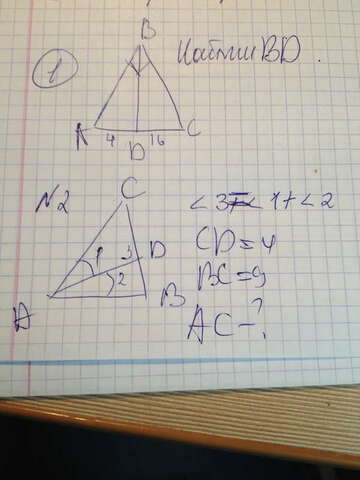 1
Найти BD.
B
A 4 D 16 C
№2
C
∠3=∠1+∠2
1 3 D
CD=4
2
BC=9
A B
AC-?